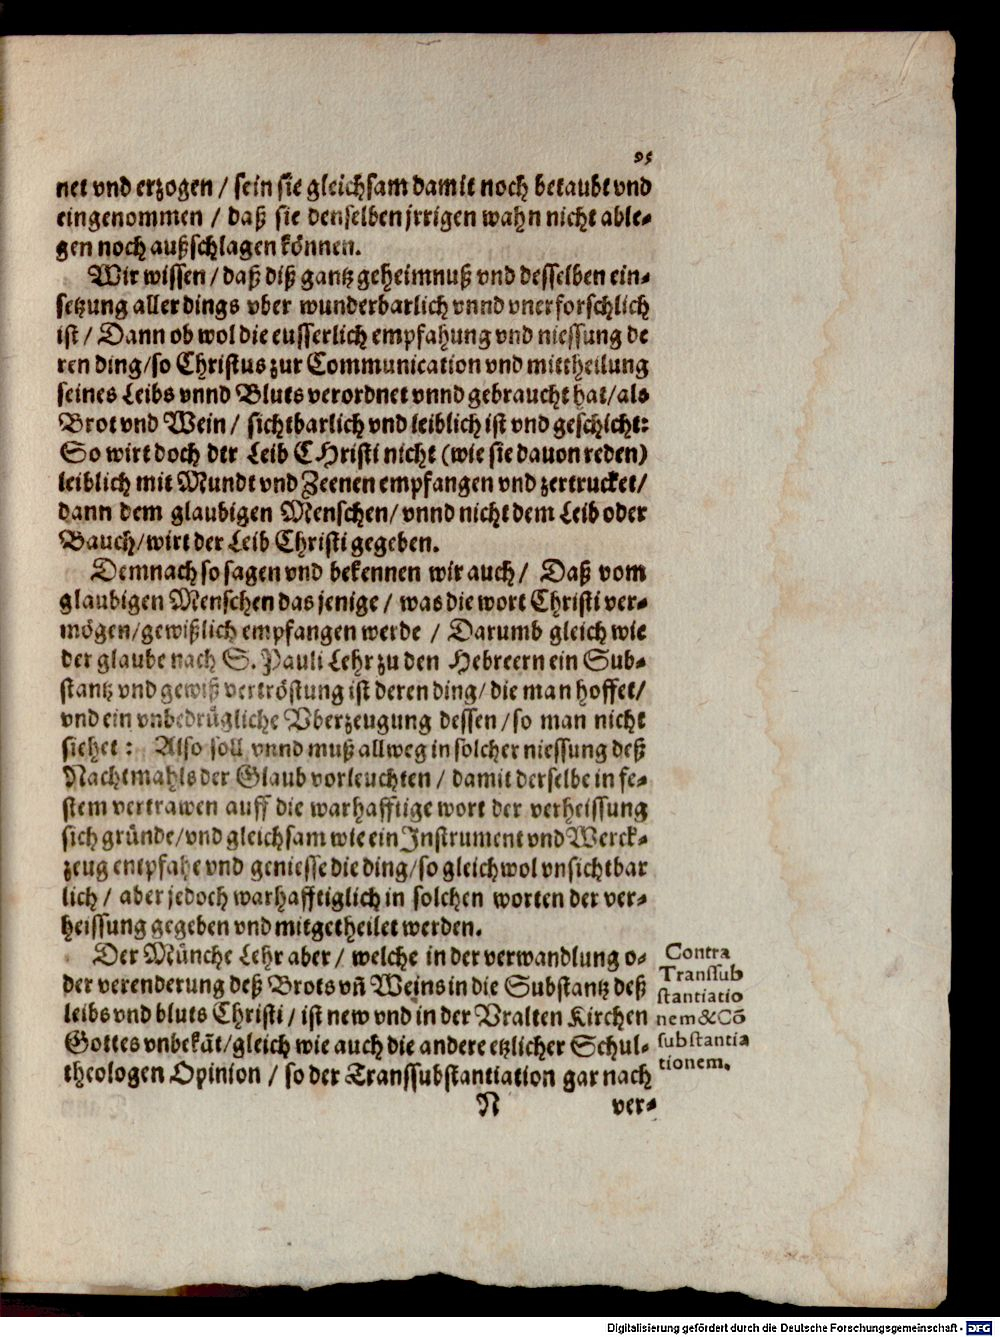 95
net vnd erzogen / sein sie gleichsam damit noch betaubt vnd
eingenommen / daß sie denselben jrrigen wahn nicht able-
gen noch außschlagen können.
Wir wissen / daß diß gantz geheimnuß vnd desselben ein-
setzung allerdings vber wunderbarlich vnnd vnerforschlich
ist / Dann ob wol die eusserlich empfahung vnd niessung de
ren ding / so Christus zur Communication vnd mittheilung
seines Leibs vnnd Bluts verordnet vnnd gebraucht hat / als
Brot vnd Wein / sichtbarlich vnd leiblich ist vnd geschicht:
So wirt doch der Leib CHristi nicht (wie sie dauon reden)
leiblich mit Mundt vnd Zeenen empfangen vnd zertrucket /
dann dem glaubigen Menschen / vnnd nicht dem Leib oder
Bauch / wirt der Leib Christi gegeben.
Demnach so sagen vnd bekennen wir auch / Daß vom
glaubigen Menschen das jenige / was die wort Christi ver-
mögen / gewißlich empfangen werde / Darumb gleich wie
der glaube nach S. Pauli Lehr zu den Hebreern ein Sub-
stantz vnd gewiß vertröstung ist deren ding / die man hoffet /
vnd ein vnbedrügliche Vberzeugung dessen / so man nicht
siehet : Also soll vnnd muß allweg in solcher niessung deß
Nachtmahls der Glaub vorleuchten / damit derselbe in fe-
stem vertrawen auff die warhafftige wort der verheissung
sich gründe / vnd gleichsam wie ein Instrument vnd Werck-
zeug entpfahe vnd geniesse die ding / so gleichwol vnsichtbar
lich / aber jedoch warhafftiglich in solchen worten der ver-
heissung gegeben vnd mitgetheilet werden.
Der Münche Lehr aber / welche in der verwandlung o-
der verenderung deß Brots vñ Weins in die Substantz deß
leibs vnd bluts Christi / ist new vnd in der Vralten Kirchen
Gottes vnbekāt / gleich wie auch die andere etzlicher Schul-
theologen Opinion / so der Transsubstantiation gar nach
Contra
Transsub
stantiatio
nem & Cō
substantia
tionem.
N ver-
Digitalisierung gefördert durch die Deutsche Forschungsgemeinschaft - DFG